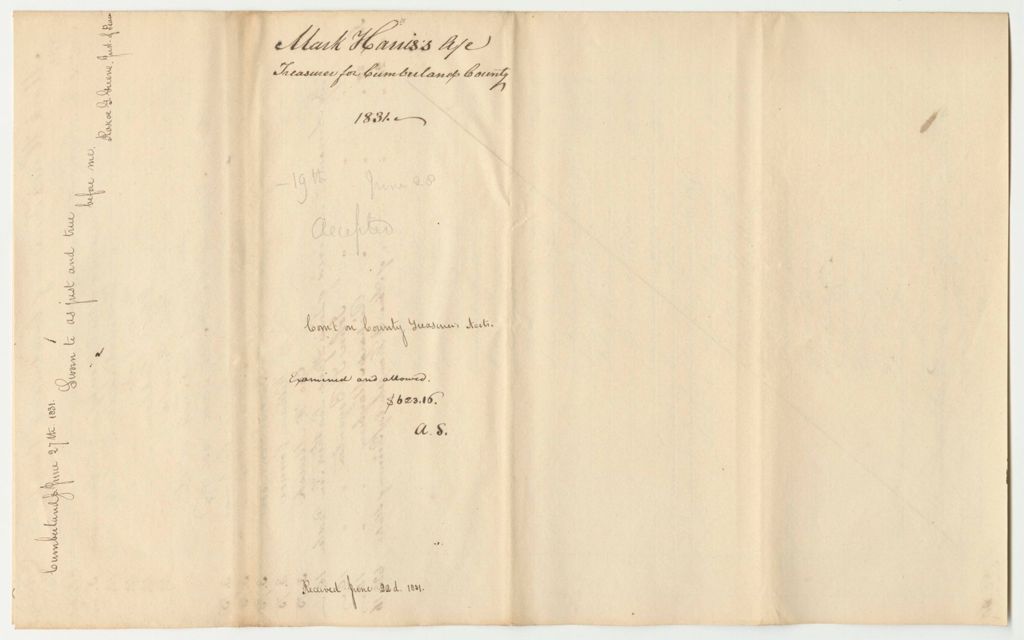 Mark Harris's A/c
Treasurer for Cumberland County
1831.
- 19th June 28
Accepted
Comt on County Treasurers Accts.
Examined and allowed.
$623.16.
A. S.
Received June 22d. 1831.
Cumberland June 27th 1831. Sworn to as just and true
before me.
Roscoe G. Greene, Just. of Peace